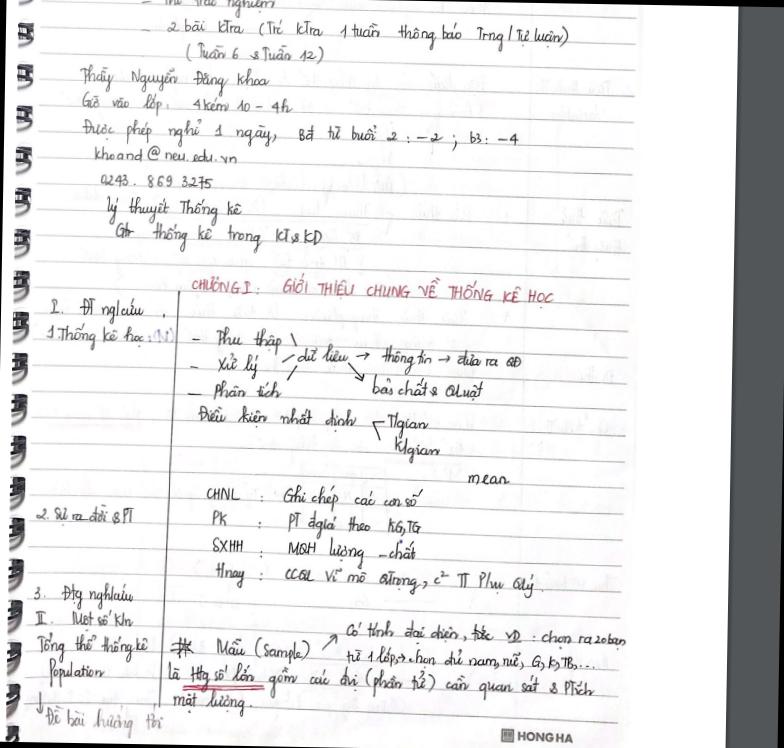 Thi trắc nghiệm
- 2 bài kTra (Trc kTra 1 tuần thông báo Trng/Tự luận)
(Tuần 6 & Tuần 12)
Thầy Nguyễn Đăng Khoa
Giờ vào lớp: 4 kém 10 - 4h
Được phép nghỉ 1 ngày, Bđ từ buổi 2 : -2 ; b3: -4
khoand@neu.edu.vn
0243. 869 3275
lý thuyết Thống kê
Gtr thống kê trong KT & KD
CHƯƠNG I: GIỚI THIỆU CHUNG VỀ THỐNG KÊ HỌC
I. ĐT ng/cứu
1. Thống kê học:
- Thu thập
- Xử lý dữ liệu → thông tin → đưa ra QĐ
- Phân tích bản chất & QLuật
Điều kiện nhất định T/gian
K/gian
mean
CHNL : Ghi chép các con số
2. Sự ra đời & PT PK : PT đgiá theo KG, TG
SXHH : MQH lượng - chất
Hnay : CCQL vĩ mô Qtrọng, c² TT Phục Qlý.
3. Đtg nghcứu
II. Một số Kn
Tổng thể thống kê Mẫu (Sample) ↗ Có tính đại diện, tức VD : chọn ra 20 bạn
từ 1 lớp, → chọn đủ nam, nữ, G, K, TB, ...
Population là Htg số lớn gồm các đvị (phần tử) cần quan sát & PTích
mặt lượng.
↓ Đề bài hướng tới
HONG HA